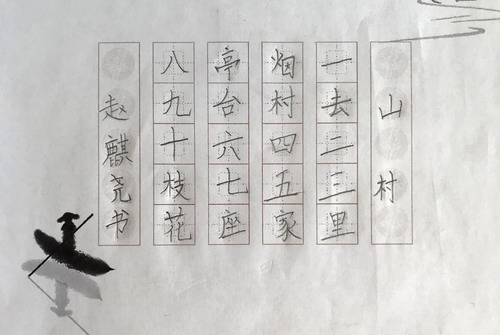 山村
一去二三里
烟村四五家
亭台六七座
八九十枝花
赵麒尧书